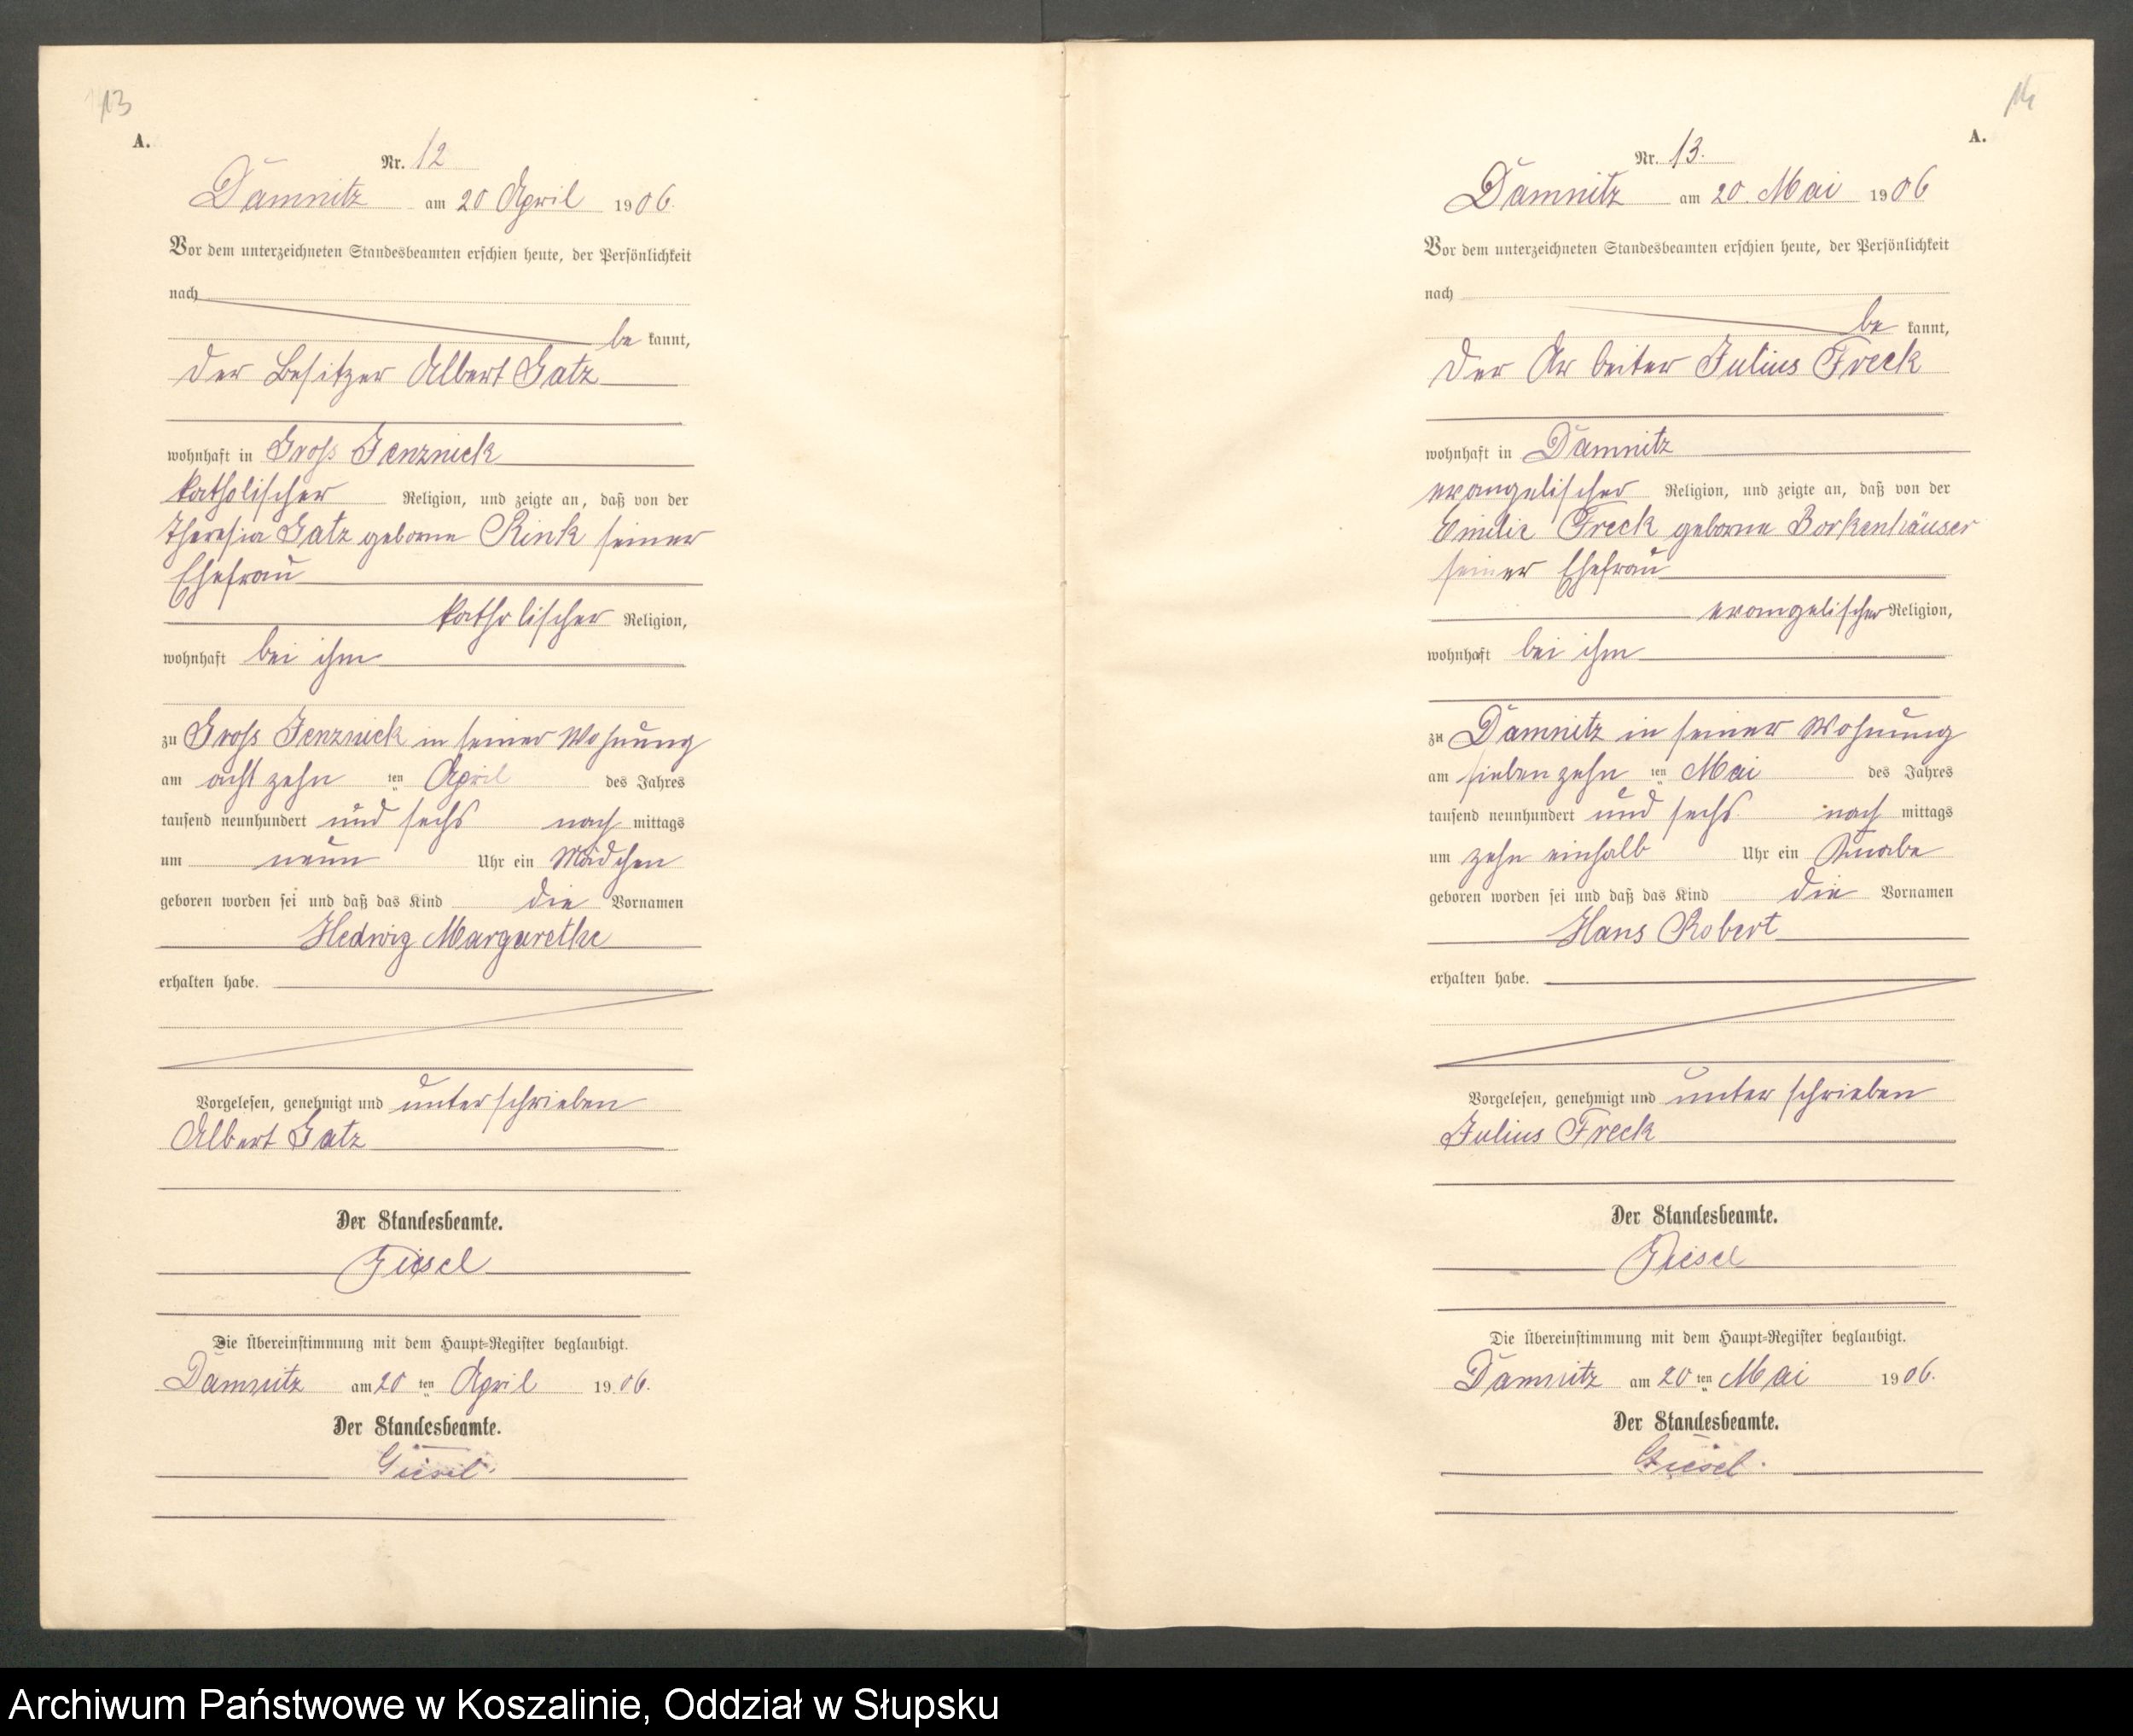 13
A.
Nr. 12
Damnitz am 20 April 1906.
Vor dem unterzeichneten Standesbeamten erschien heute, der Persönlichkeit
nach
be kannt,
der Besitzer Albert Gatz
wohnhaft in Gross Jenznick
katholischer Religion, und zeigte an, daß von der
Theresia Gatz geborne Rink seiner
Ehefrau
katholischer Religion,
wohnhaft bei ihm
zu Gross Jenznick in seiner Wohnung
am acht zehn ten April des Jahres
tausend neunhundert und sechs nach mittags
um neun Uhr ein Mädchen
geboren worden sei und daß das Kind die Vornamen
Hedwig Margarethe
erhalten habe.
Vorgelesen, genehmigt und unterschrieben
Albert Gatz
Der Standesbeamte.
Giesel
Die Übereinstimmung mit dem Haupt-Register beglaubigt.
Damnitz am 20 ten April 1906.
Der Standesbeamte.
Giesel.
14
A.
Nr. 13.
Damnitz am 20. Mai 1906
Vor dem unterzeichneten Standesbeamten erschien heute, der Persönlichkeit
nach
be kannt,
der Arbeiter Julius Freck
wohnhaft in Damnitz
evangelischer Religion, und zeigte an, daß von der
Emilie Freck geborne Borkenhäuser
seiner Ehefrau
evangelischer Religion,
wohnhaft bei ihm
zu Damnitz in seiner Wohnung
am siebenzehn ten Mai des Jahres
tausend neunhundert und sechs nach mittags
um zehn einhalb Uhr ein Knabe
geboren worden sei und daß das Kind die Vornamen
Hans Robert
erhalten habe.
Vorgelesen, genehmigt und unterschrieben
Julius Freck
Der Standesbeamte.
Giesel
Die Übereinstimmung mit dem Haupt-Register beglaubigt.
Damnitz am 20 ten Mai 1906.
Der Standesbeamte.
Giesel.
Archiwum Państwowe w Koszalinie, Oddział w Słupsku